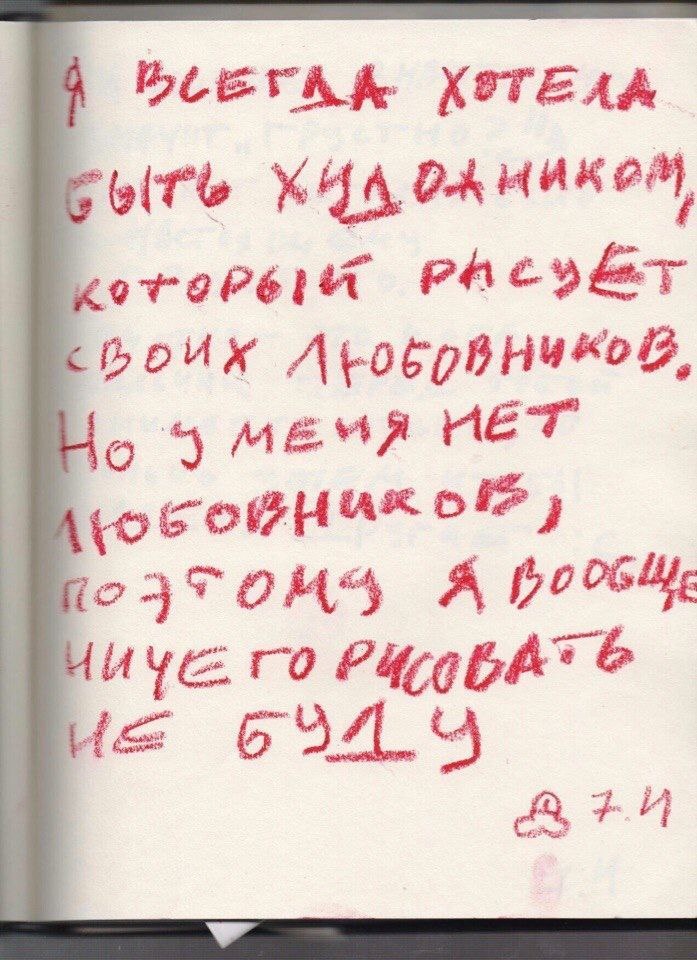 Я ВСЕГДА ХОТЕЛА
БЫТЬ ХУДОЖНИКОМ,
КОТОРЫЙ РИСУЕТ
СВОИХ ЛЮБОВНИКОВ.
НО У МЕНЯ НЕТ
ЛЮБОВНИКОВ,
ПОЭТОМУ Я ВООБЩЕ
НИЧЕГО РИСОВАТЬ
НЕ БУДУ
7.Ч